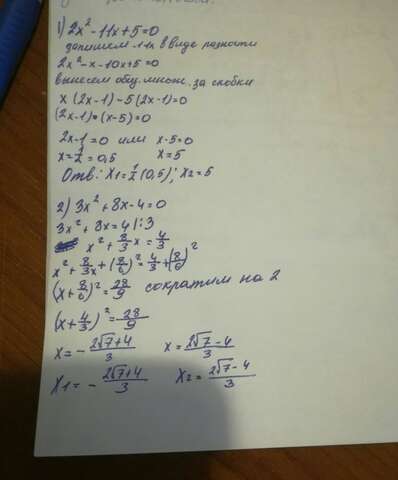 1) 2x² - 11x + 5 = 0
запишем -11x в виде разности
2x² - x - 10x + 5 = 0
вынесем общ. множ. за скобки
x (2x - 1) - 5 (2x - 1) = 0
(2x - 1) • (x - 5) = 0
2x - 1 = 0 или x - 5 = 0
x = 1/2 = 0,5 x = 5
Отв: x1 = 1/2 (0,5); x2 = 5
2) 3x² + 8x - 4 = 0
3x² + 8x = 4 |: 3
x² + 8/3 x = 4/3
x² + 8/3 x + (8/6)² = 4/3 + (8/6)²
(x + 8/6)² = 28/9 сократим на 2
(x + 4/3)² = 28/9
x = - 2√7+4/3 x = 2√7-4/3
x1 = - 2√7+4/3 x2 = 2√7-4/3